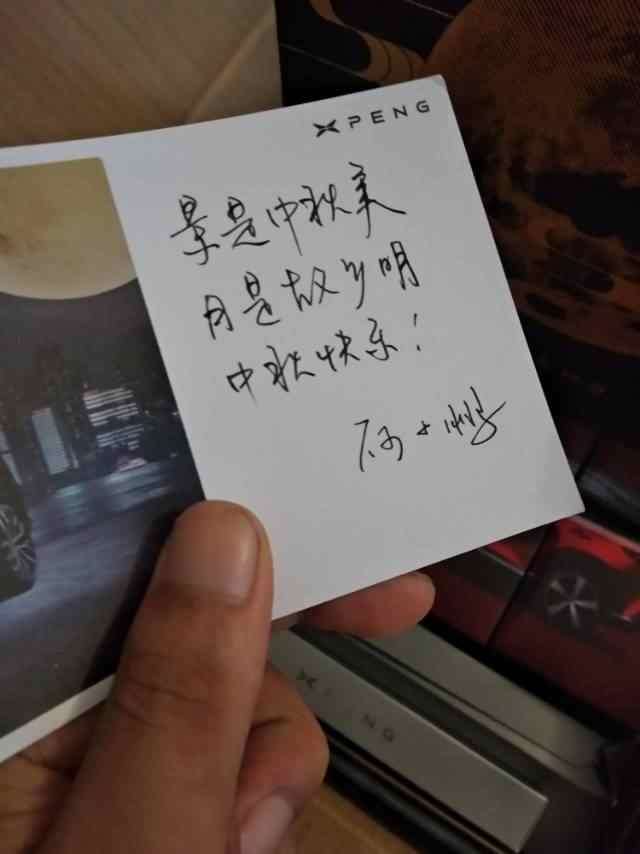 XPENG
景是中秋美
月是故乡明
中秋快乐!
何小鹏
XPENG